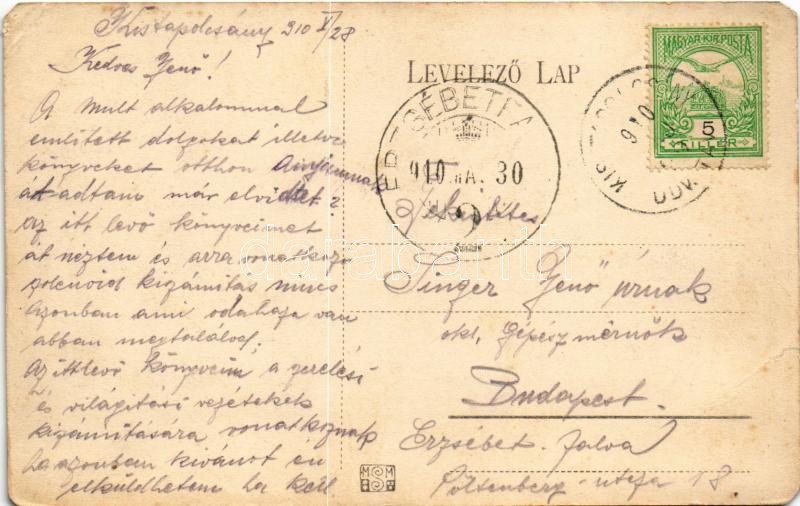 Kistapolcsány 910 V/28
Kedves Jenő!
A mult alkalommal
említett dolgokat illetve
könyveket otthon Anyámnak
átadtam már elvitted?
az itt levő könyveimet
át néztem és arra vonatkozó
solenoid kiszámítás nincs
azonban ami odahaza van
abban megtalálod.
az ittlevő könyveim a szerelési
és világítási vezetékek
kiszámítására vonatkoznak
ha azonban kivánod én
elküldhetem ha kell
LEVELEZŐ LAP
ERZSÉBETFA
910 MÁJ. 30
MAGYAR KIR. POSTA
5
FILLÉR
910
KIS
Tekintetes
Singer Jenő úrnak
okl. gépész mérnök
Budapest.
Erzsébet-falva
Pöltenberg-utcza 18
darabanth
M S M